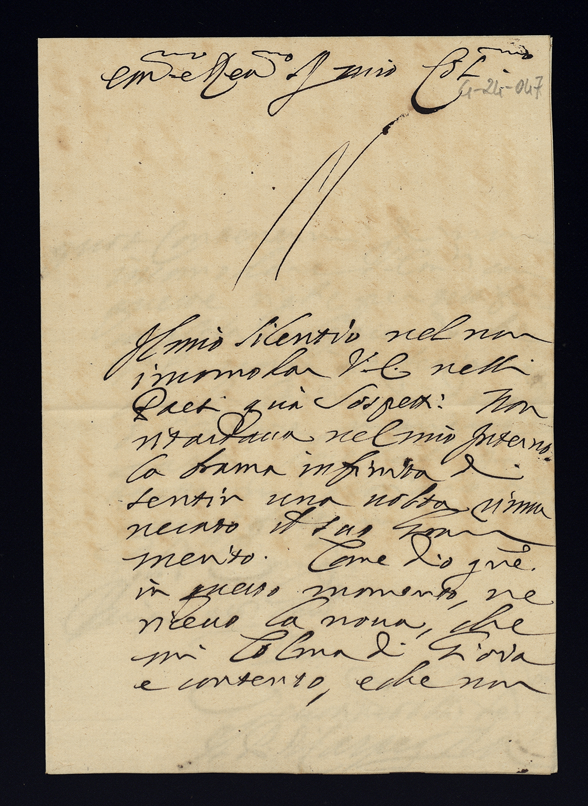 Em.mo e Rev.mo Sig.r mio Col.mo
4-24-047
Il mio silentio nel non
incomodar V.E. nelli
Paesi già sospetti: non
ritardava nel mio Interno
la brama infinita di
sentir una volta rimu
nerato il suo Gran
merito. Come Dio
in questo momento, ne
ricevo la nova, che
mi Colma di Gioia
e contento, e che non